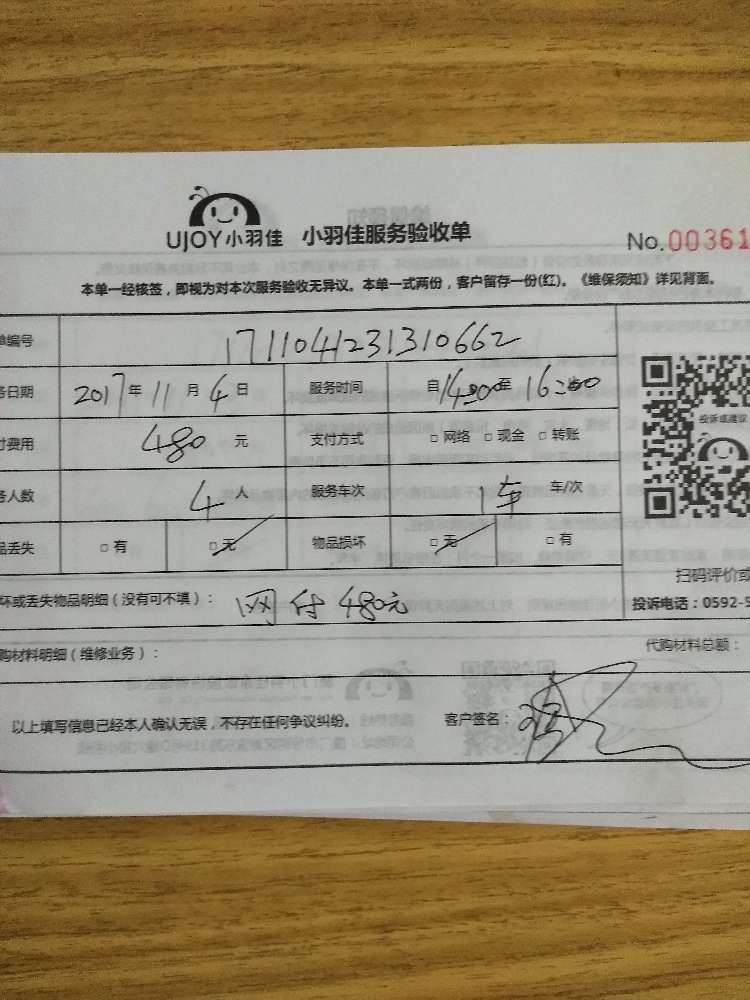 UJOY小羽佳 小羽佳服务验收单 No.00361
本单一经核签，即视为对本次服务验收无异议。本单一式两份，客户留存一份(红)。《维保须知》详见背面。
单编号 1711041231310662
务日期 2017年11月4日 服务时间 自1400至16:00
付费用 480元 支付方式 □网络 □现金 □转账
投诉或建议
务人数 4人 服务车次 1车 车/次
品丢失 □有 □无 物品损坏 □无 □有
扫码评价或
坏或丢失物品明细（没有可不填）： 网付480元
投诉电话：0592-5
购材料明细（维修业务）： 代购材料总额：
以上填写信息已经本人确认无误，不存在任何争议纠纷。 客户签名：